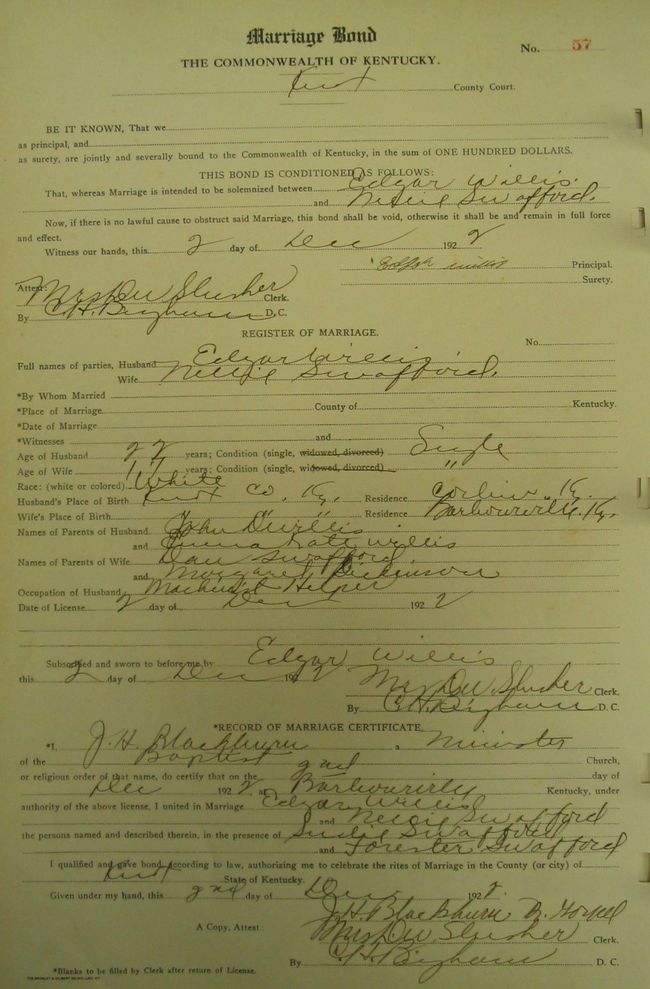 Marriage Bond
No. 57
THE COMMONWEALTH OF KENTUCKY.
Knox County Court.
BE IT KNOWN, That we
as principal, and
as surety, are jointly and severally bound to the Commonwealth of Kentucky, in the sum of ONE HUNDRED DOLLARS.
THIS BOND IS CONDITIONED AS FOLLOWS:
That, whereas Marriage is intended to be solemnized between Edgar Willis
and Nellie Swafford.
Now, if there is no lawful cause to obstruct said Marriage, this bond shall be void, otherwise it shall be and remain in full force
and effect.
Witness our hands, this 2 day of Dec 1922
Willis Principal.
Surety.
Attest: Mrs D W Slusher Clerk.
By C. H. Bingham D. C.
REGISTER OF MARRIAGE.
No.
Full names of parties, Husband Edgar Willis
Wife Nellie Swafford.
*By Whom Married
*Place of Marriage County of Kentucky.
*Date of Marriage
*Witnesses and
Age of Husband 22 years; Condition (single, widowed, divorced) Single
Age of Wife 17 years; Condition (single, widowed, divorced) "
Race: (white or colored) White
Husband's Place of Birth Knox Co. Ky. Residence Corbin, Ky.
Wife's Place of Birth " " Residence Barbourville, Ky.
Names of Parents of Husband John D Willis
and Emma Willis
Names of Parents of Wife Dan Swafford
and Margaret Dickinson
Occupation of Husband Machinist Helper
Date of License 2 day of Dec 1922
Subscribed and sworn to before me by Edgar Willis
this 2 day of Dec 1922
Mrs D W Slusher Clerk.
By C. H. Bingham D. C.
*RECORD OF MARRIAGE CERTIFICATE.
*I, J. H. Blackburn a Minister
of the Baptist Church,
or religious order of that name, do certify that on the 2nd day of
Dec 1922 at Barbourville Kentucky, under
authority of the above license, I united in Marriage Edgar Willis
and Nellie Swafford
the persons named and described therein, in the presence of Swafford
and Forester Swafford
I qualified and gave bond according to law, authorizing me to celebrate the rites of Marriage in the County (or city) of
Knox State of Kentucky.
Given under my hand, this 2nd day of Dec 1922.
J. H. Blackburn
A Copy, Attest: Mrs D W Slusher Clerk.
By C. H. Bingham D. C.
*Blanks to be filled by Clerk after return of License.